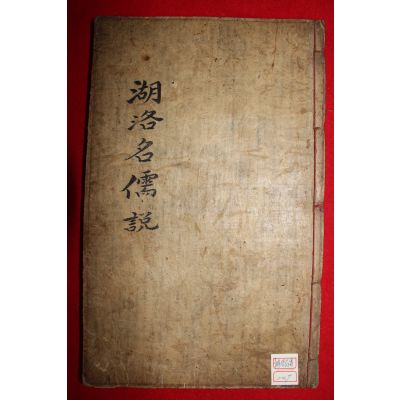 湖洛名儒説